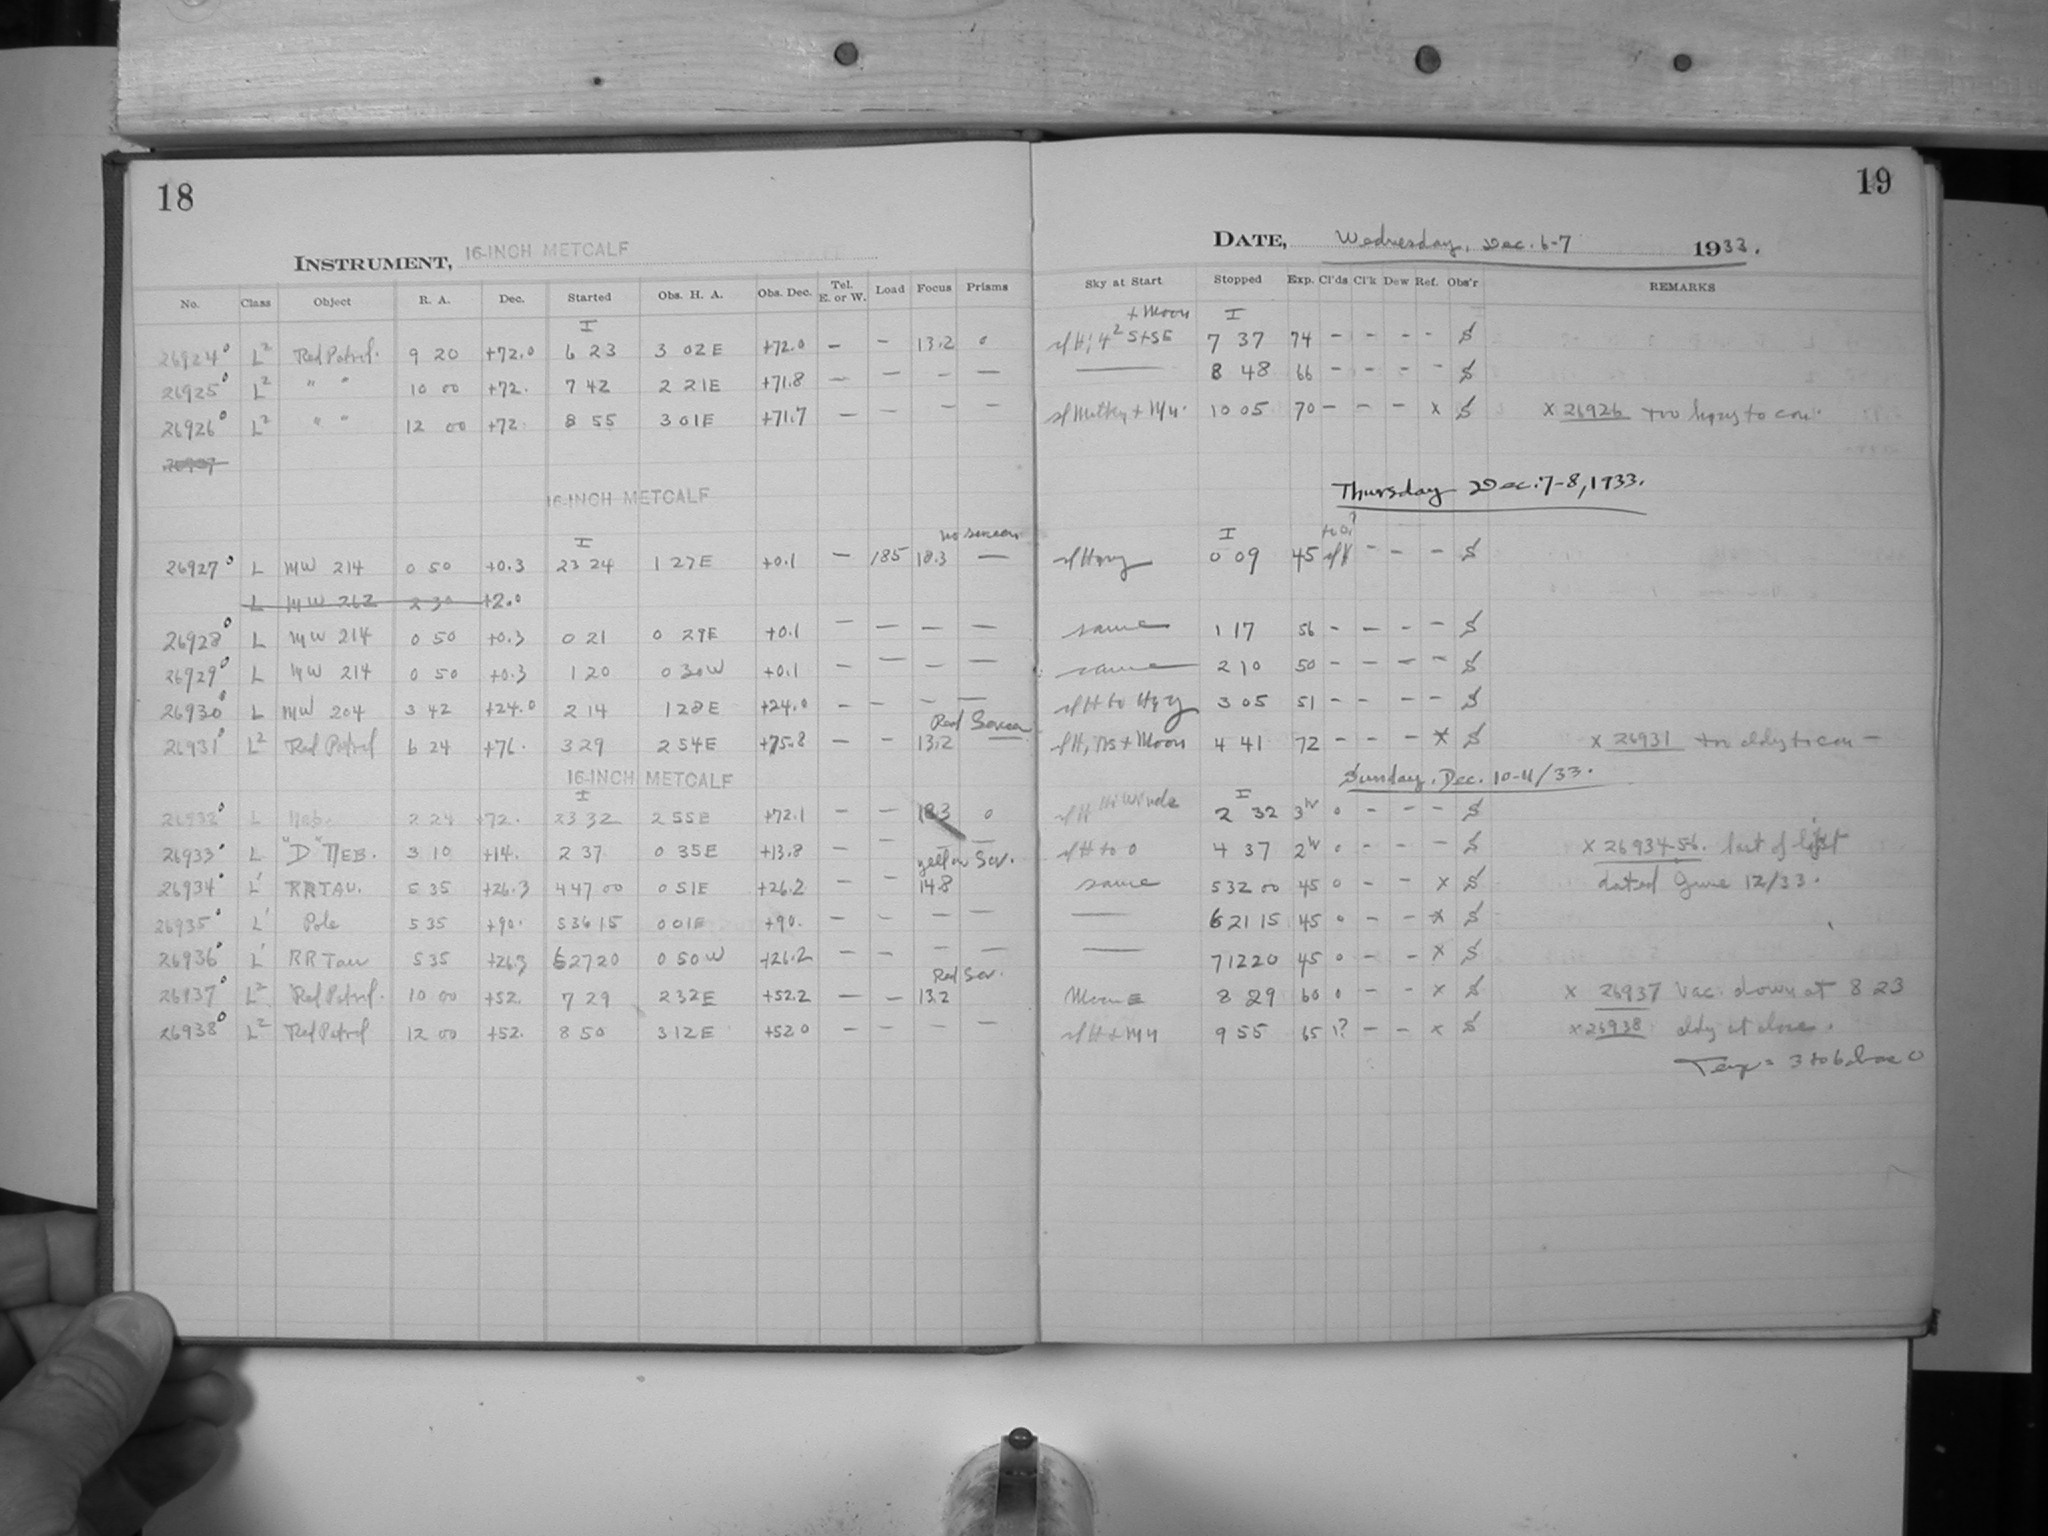 18
19
INSTRUMENT, 16-INCH METCALF
DATE, Wednesday, Dec. 6-7 1933.
No. Class Object R. A. Dec. Started Obs. H. A. Obs. Dec. Tel. E. or W. Load Focus Prisms Sky at Start Stopped Exp. Cl'ds Cl'k Dew Ref. Obs'r REMARKS
I + Moon I
26924 L2 Red Patrol. 9 20 +72.0 6 23 3 02E +72.0 — — 13.2 0 7 37 74 - - - - S
26925 L2 " " 10 00 +72. 7 42 2 21E +71.8 — — — — — 8 48 66 - - - - S
26926 L2 " " 12 00 +72 8 55 3 01E +71.7 — — — — 10 05 70 - - - x S x 26926 too
26937
16-INCH METCALF
Thursday Dec. 7-8, 1933.
I no screen I
26927 L MW 214 0 50 +0.3 23 24 1 27E +0.1 — 185 18.3 — 0 09 45 - - - S
L MW 262 2 30 +2.0
26928 L MW 214 0 50 +0.3 0 21 0 29E +0.1 — — — — same 1 17 56 - - - - S
26929 L MW 214 0 50 +0.3 1 20 0 30W +0.1 — — — — same 2 10 50 - - - - S
26930 L MW 204 3 42 +24.0 2 14 1 28E +24.0 — — — — 3 05 51 - - - - S
Red Screen
26931 L2 Red Patrol 6 24 +76. 3 29 2 54E +75.8 — — 13.2 + Moon 4 41 72 - - - x S x 26931
16-INCH METCALF
Sunday, Dec. 10-11/33.
I I
26932 L Neb. 2 24 +72. 23 32 2 55E +72.1 — — 18.3 0 2 32 3h 0 - - - S
26933 L "D" NEB. 3 10 +14. 2 37 0 35E +13.8 — — — — 4 37 2h 0 - - - S x 26934-56. last of
yellow Scr.
26934 L' RR TAU. 5 35 +26.3 4 47 00 0 51E +26.2 — — 14.8 same 5 32 00 45 0 - - x S dated June 12/33.
26935 L' Pole 5 35 +90. 5 36 15 0 01E +90. — — — — — 6 21 15 45 0 - - x S
26936 L' RR Tau 5 35 +26.3 6 27 20 0 50W +26.2 — — — — — 7 12 20 45 0 - - x S
Red Scr.
26937 L2 Red Patrol. 10 00 +52. 7 29 2 32E +52.2 — — 13.2 Moon 8 29 60 0 - - x S x 26937 Vac. down at 8 23
26938 L2 Red Patrol 12 00 +52. 8 50 3 12E +52.0 — — — — 9 55 65 1? - - x S x 26938 cldy at close.
Temp = 3 to 6 above 0